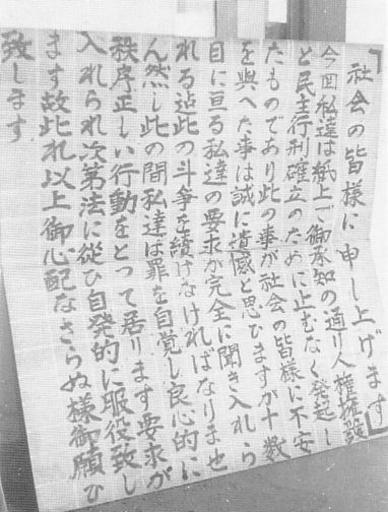 「社会の皆様に申し上げます」
今回私達は紙上で御承知の通り人権擁護
と民主行刑確立のために止むなく発起し
たものであり此の事が社会の皆様に不安
を與へた事は誠に遺憾と思ひますが十数
目に亘る私達の要求が完全に聞き入れら
れる迠此の斗争を續けなければなりませ
ん然し此の間私達は罪を自覚し良心的に
秩序正しい行動をとって居ります要求が
入れられ次第法に從ひ自発的に服役致し
ます故此れ以上御心配なさらぬ様御願ひ
致します